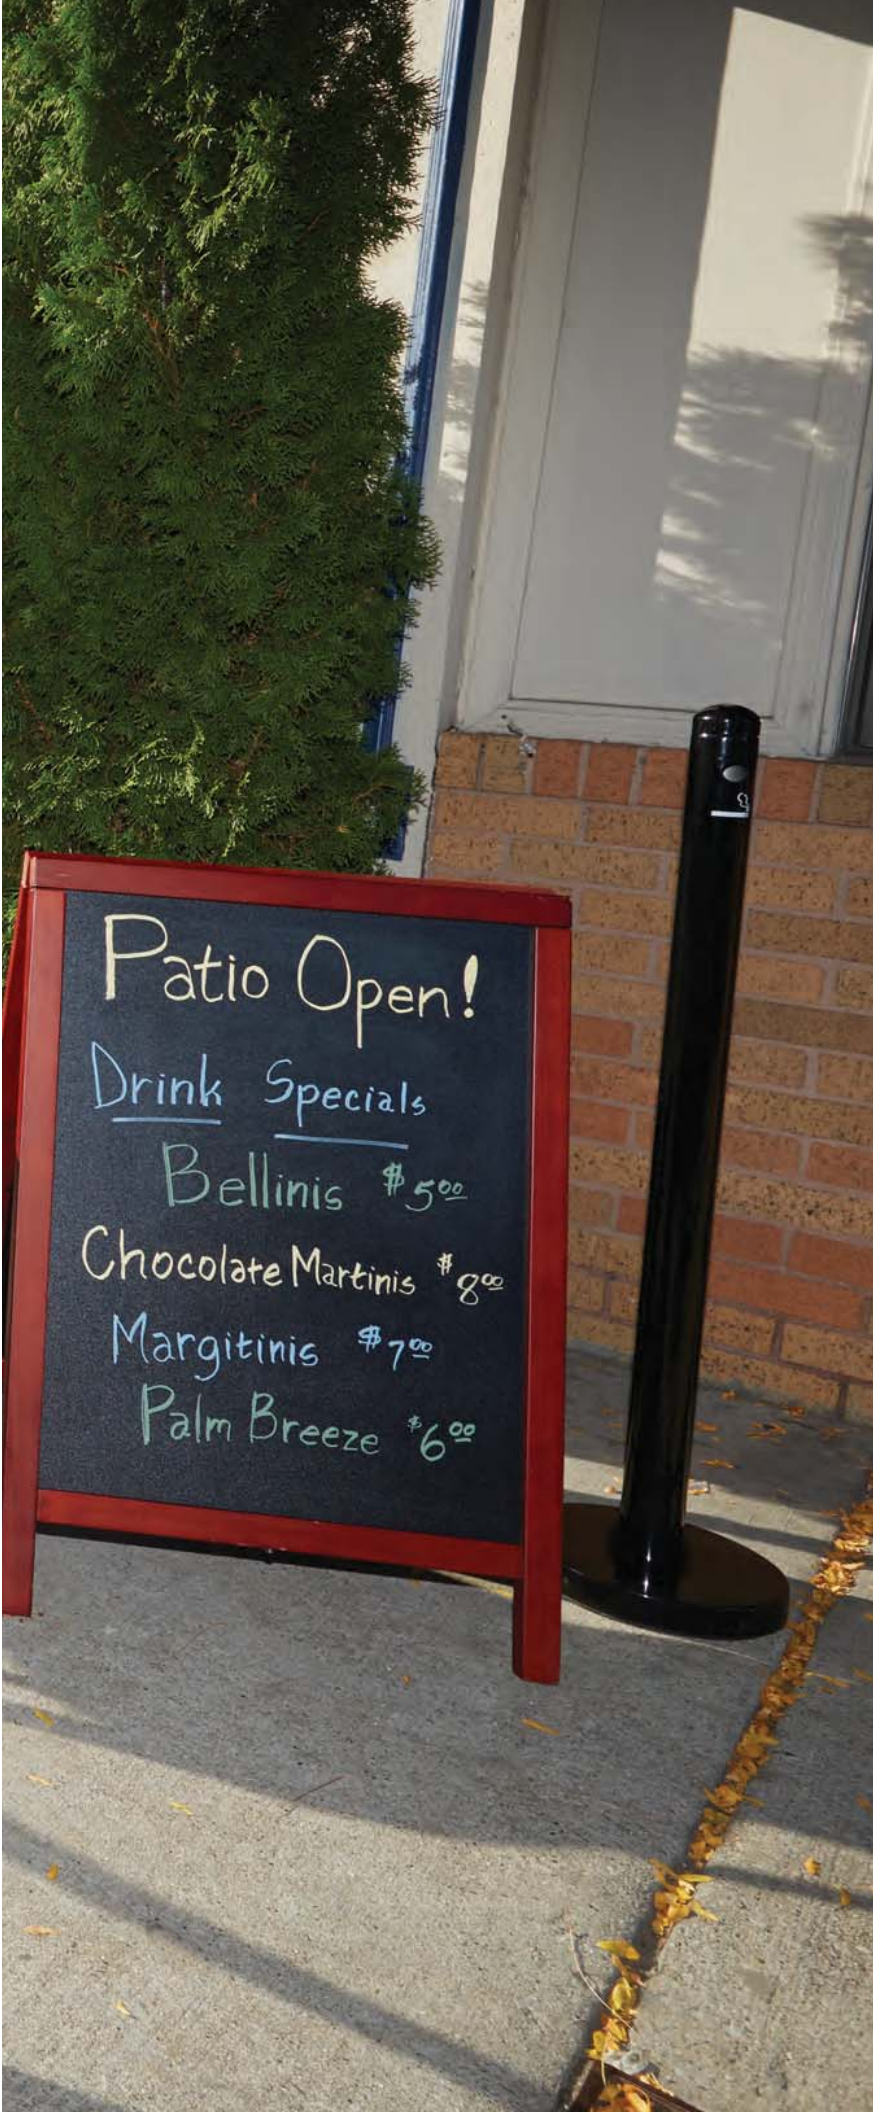 Patio Open!
Drink Specials
Bellinis $5.00
Chocolate Martinis $8.00
Margitinis $7.00
Palm Breeze $6.00